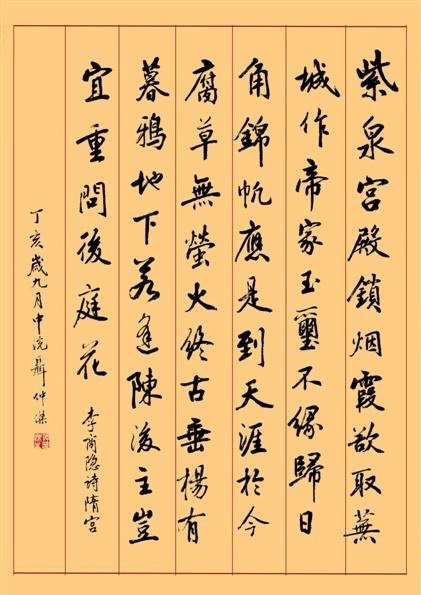 紫泉宫殿鎖烟霞欲取蕪
城作帝家玉璽不緣歸日
角錦帆應是到天涯於今
腐草無螢火終古垂楊有
暮鴉地下若逢陳後主豈
宜重問後庭花
李商隐詩隋宫
丁亥歲九月中浣聶仲傑